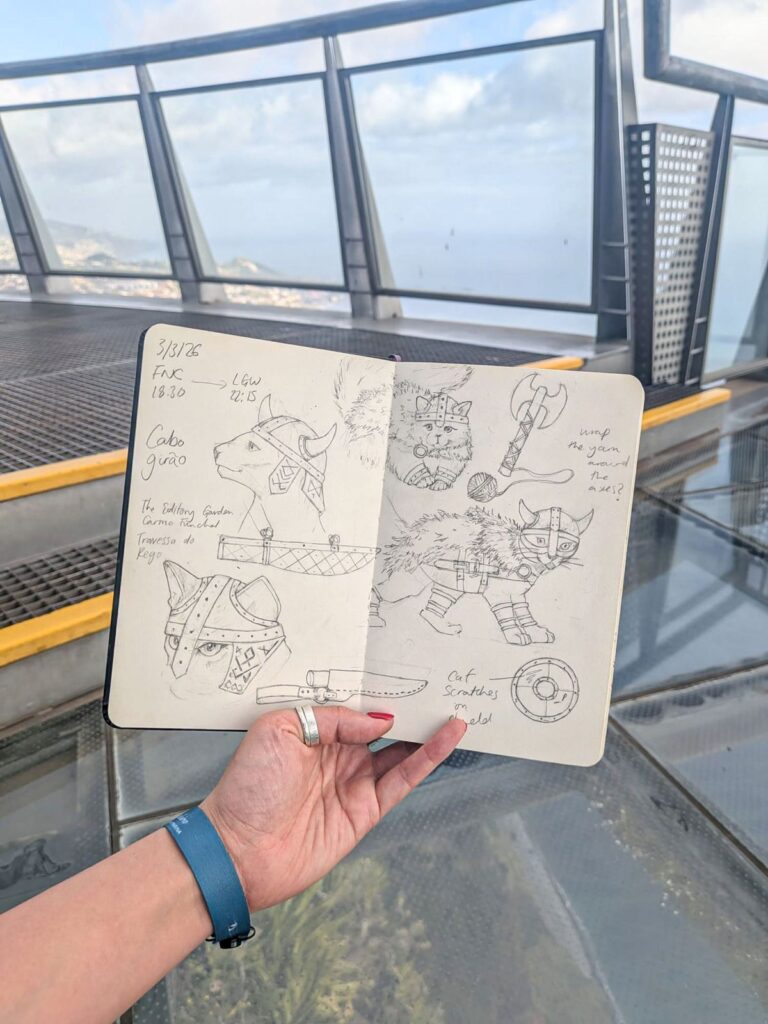 3/3/26
FNC → LGW
18:30 22:15
Cabo
girão
The Editory Garden
Carmo Funchal
Travessa do
Rego
wrap
the yarn
around
the
axes?
Cat
Scratches
on
shield